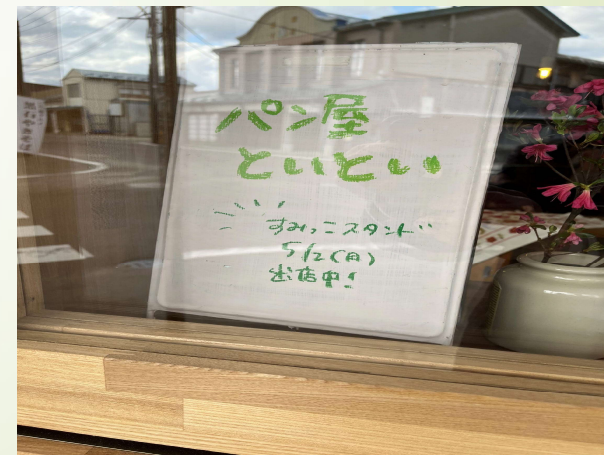 パン屋
といとい
すみっこスタンド
5/2(月)
出店中!